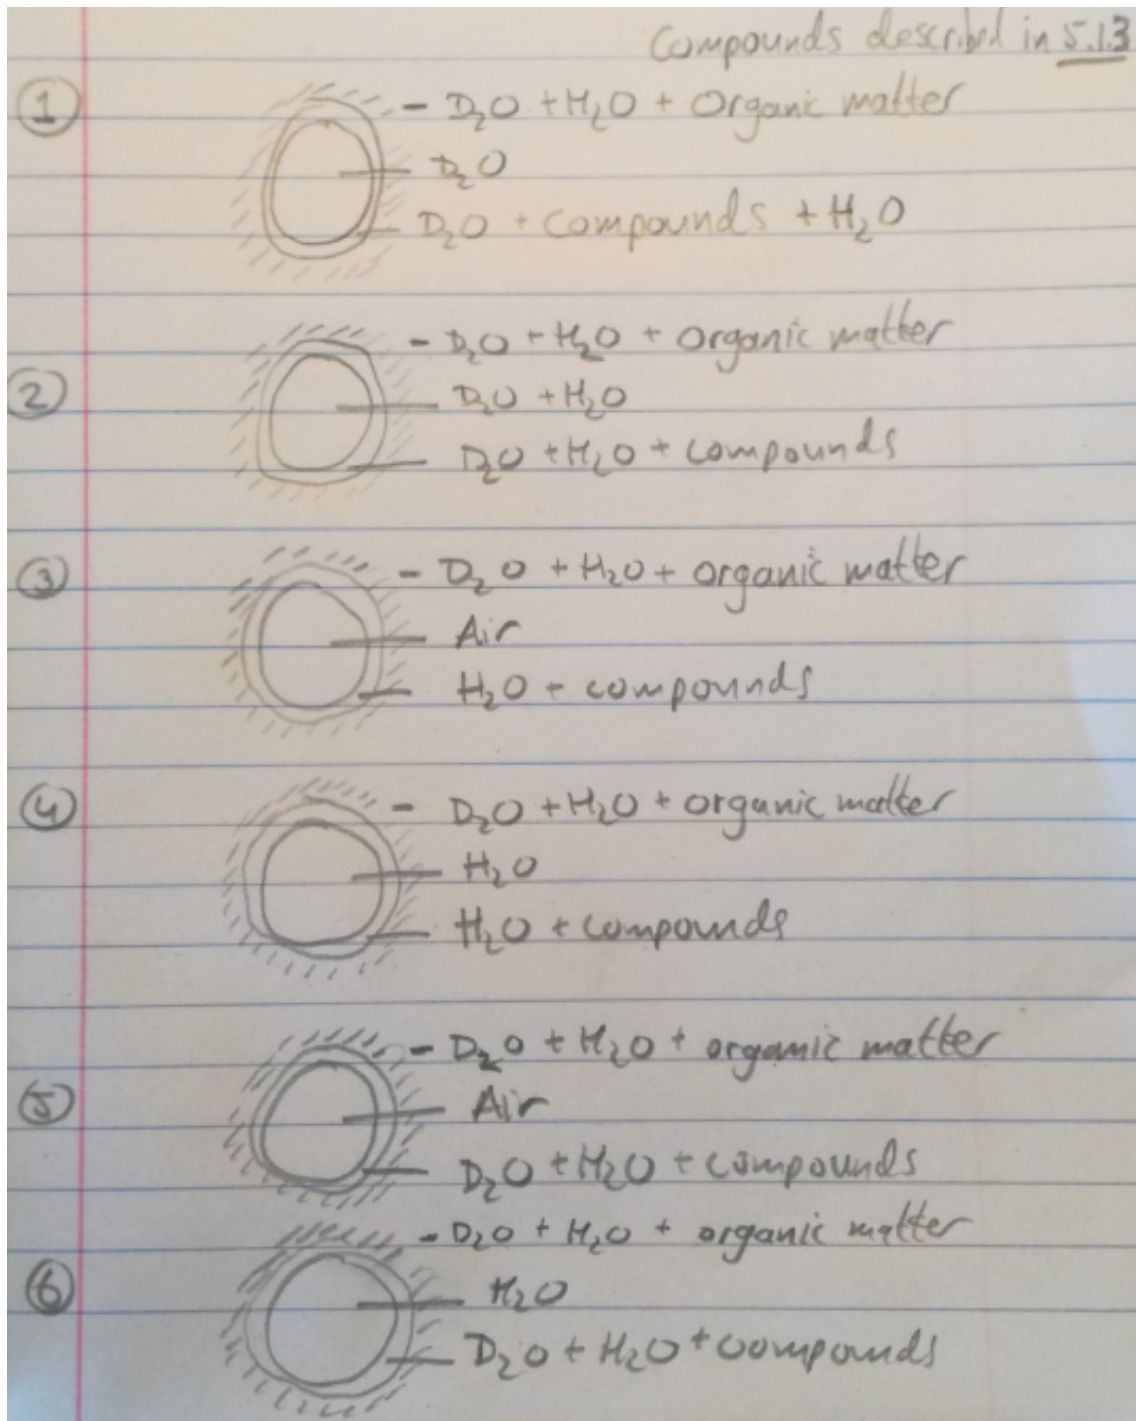 Compounds described in 5.1.3
1
- D₂O + H₂O + Organic matter
D₂O
D₂O + compounds + H₂O
2
- D₂O + H₂O + Organic matter
D₂O + H₂O
D₂O + H₂O + compounds
3
- D₂O + H₂O + organic matter
Air
H₂O + compounds
4
- D₂O + H₂O + organic matter
H₂O
H₂O + compounds
5
- D₂O + H₂O + organic matter
Air
D₂O + H₂O + compounds
6
- D₂O + H₂O + organic matter
H₂O
D₂O + H₂O + compounds